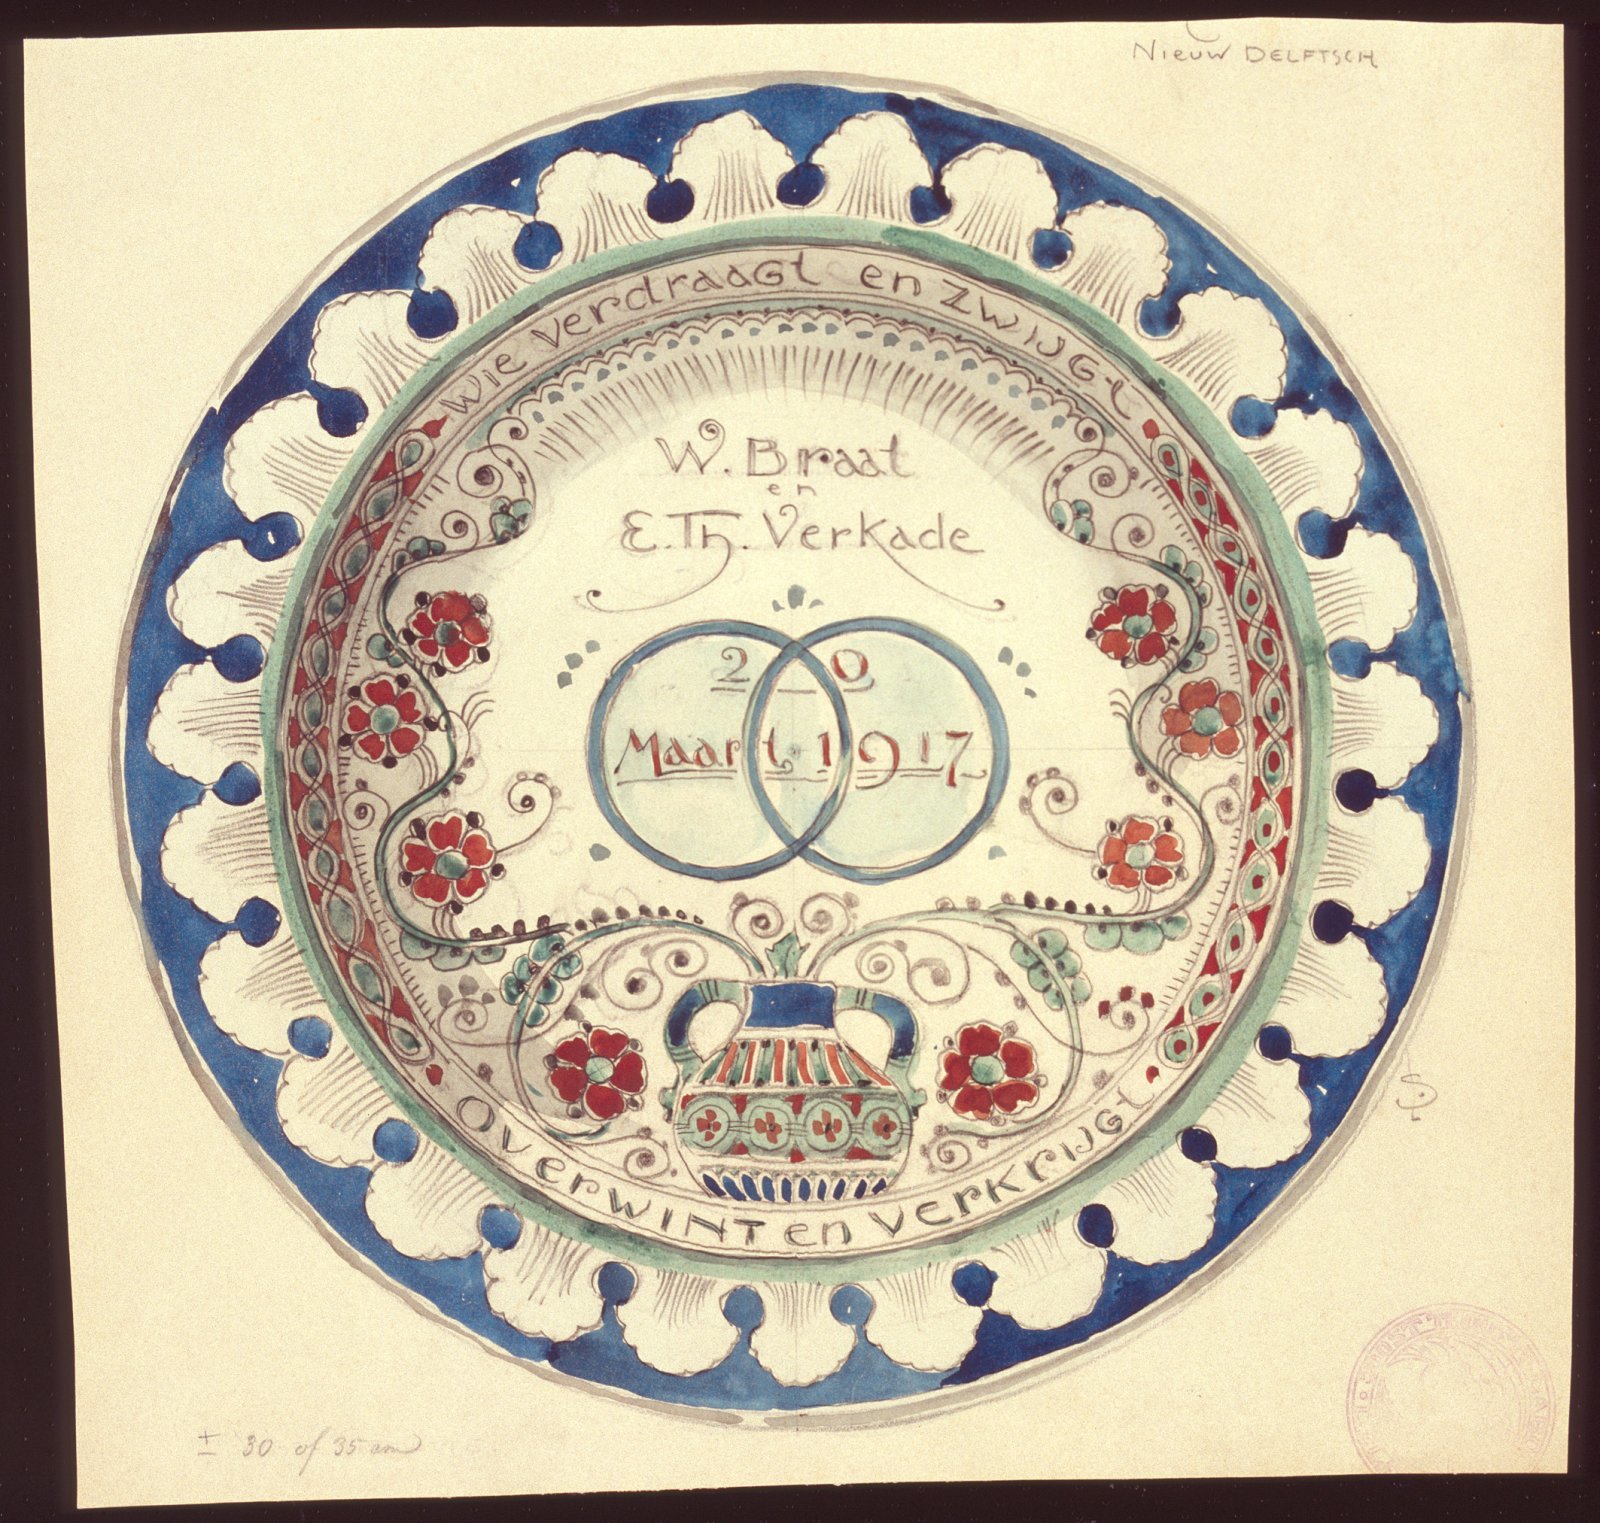 Nieuw Delftsch
Wie verdraagt en zwijgt
W. Braat
en
E. Th. Verkade
20
Maart 1917
Overwint en verkrijgt
± 30 of 35 cm